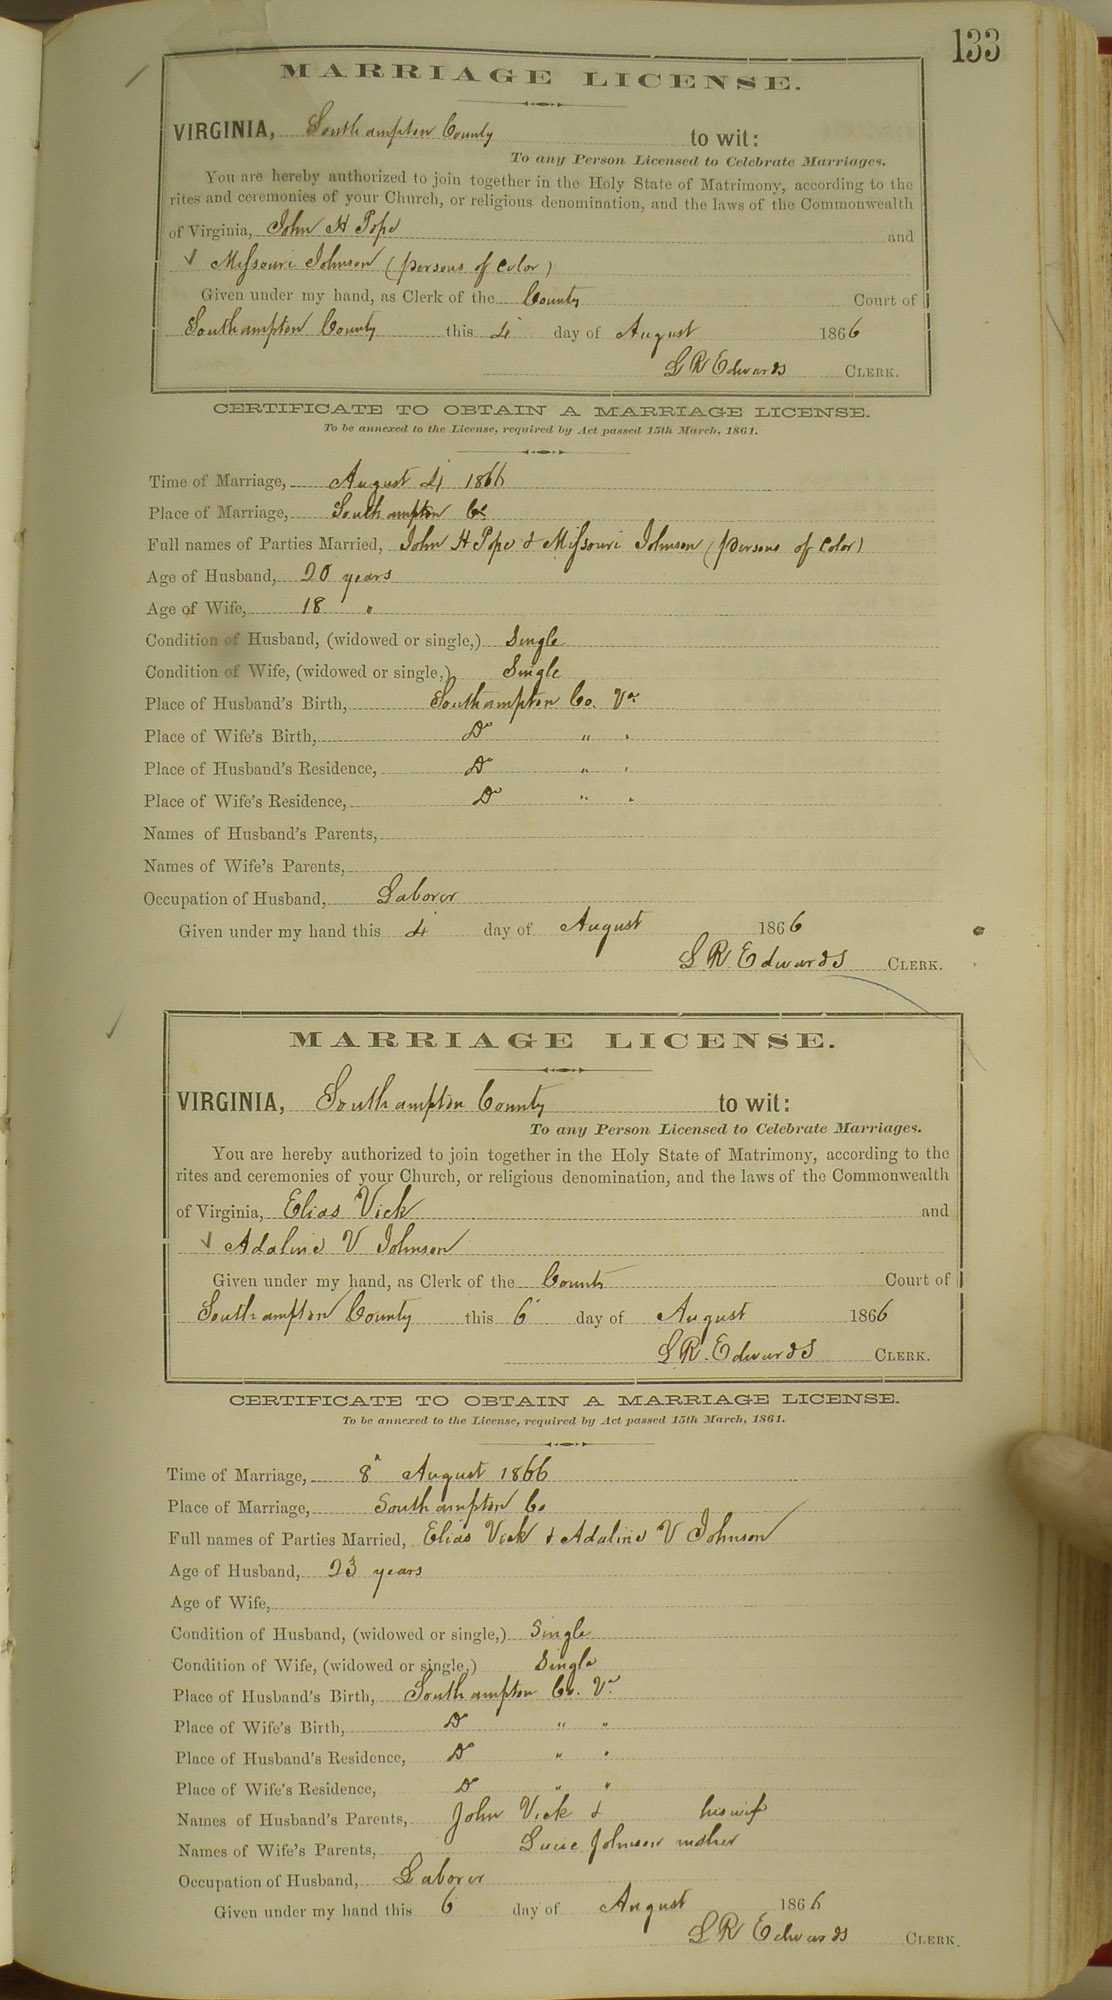 133
MARRIAGE LICENSE.
VIRGINIA, Southampton County to wit:
To any Person Licensed to Celebrate Marriages.
You are hereby authorized to join together in the Holy State of Matrimony, according to the
rites and ceremonies of your Church, or religious denomination, and the laws of the Commonwealth
of Virginia, John H Pope and
✓ Missouri Johnson (persons of Color)
Given under my hand, as Clerk of the County Court of
Southampton County this 4 day of August 1866
L R Edwards CLERK.
CERTIFICATE TO OBTAIN A MARRIAGE LICENSE.
To be annexed to the License, required by Act passed 15th March, 1861.
Time of Marriage, August 4 1866
Place of Marriage, Southampton Co
Full names of Parties Married, John H Pope & Missouri Johnson (persons of Color)
Age of Husband, 20 years
Age of Wife, 18 "
Condition of Husband, (widowed or single,) Single
Condition of Wife, (widowed or single,) Single
Place of Husband's Birth, Southampton Co. Va
Place of Wife's Birth, Do " "
Place of Husband's Residence, Do " "
Place of Wife's Residence, Do " "
Names of Husband's Parents,
Names of Wife's Parents,
Occupation of Husband, Laborer
Given under my hand this 4 day of August 1866
L R Edwards CLERK.
MARRIAGE LICENSE.
VIRGINIA, Southampton County to wit:
To any Person Licensed to Celebrate Marriages.
You are hereby authorized to join together in the Holy State of Matrimony, according to the
rites and ceremonies of your Church, or religious denomination, and the laws of the Commonwealth
of Virginia, Elias Vick and
✓ Adaline V Johnson
Given under my hand, as Clerk of the County Court of
Southampton County this 6 day of August 1866
L R. Edwards CLERK.
CERTIFICATE TO OBTAIN A MARRIAGE LICENSE.
To be annexed to the License, required by Act passed 15th March, 1861.
Time of Marriage, 8 August 1866
Place of Marriage, Southampton Co
Full names of Parties Married, Elias Vick & Adaline V Johnson
Age of Husband, 23 years
Age of Wife,
Condition of Husband, (widowed or single,) Single
Condition of Wife, (widowed or single,) Single
Place of Husband's Birth, Southampton Co. Va
Place of Wife's Birth, Do " "
Place of Husband's Residence, Do " "
Place of Wife's Residence, Do " "
Names of Husband's Parents, John Vick & his wife
Names of Wife's Parents, Lucie Johnson mother
Occupation of Husband, Laborer
Given under my hand this 6 day of August 1866
L R Edwards CLERK.